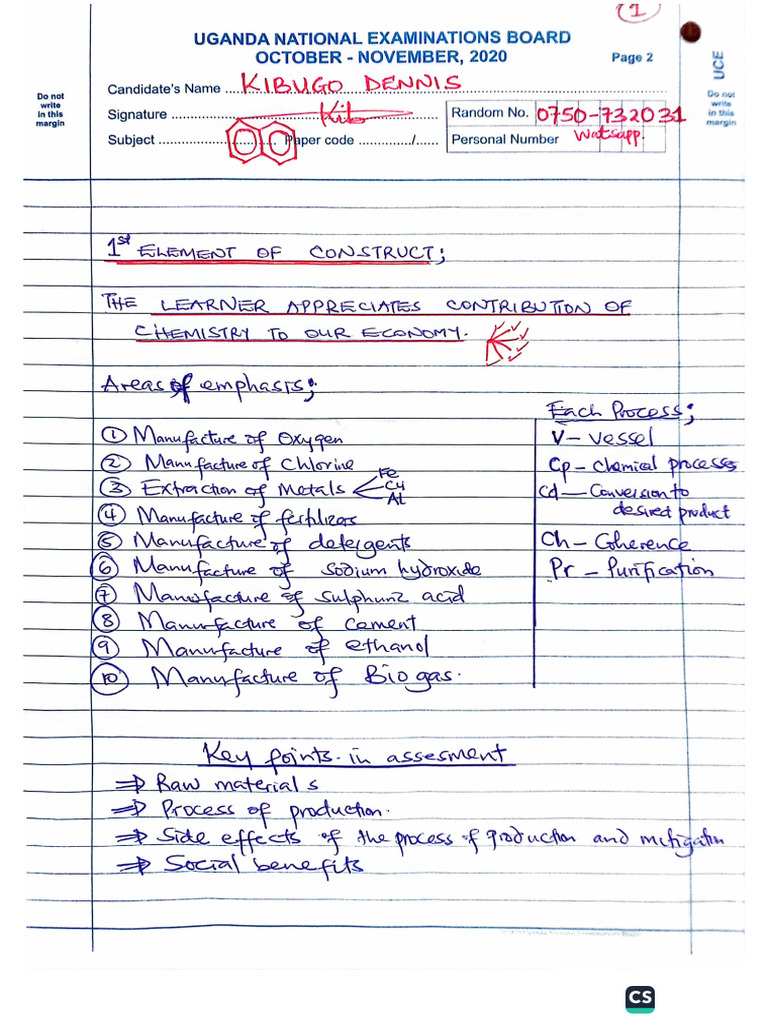 1
UGANDA NATIONAL EXAMINATIONS BOARD
OCTOBER - NOVEMBER, 2020
Page 2
UCE
Do not write in this margin
Do not write in this margin
Candidate's Name ... KIBUGO DENNIS
Signature
Random No. 0750-732031
Subject ... Paper code ............./......
Personal Number Watsapp
1st ELEMENT OF CONSTRUCT;
THE LEARNER APPRECIATES CONTRIBUTION OF
CHEMISTRY TO OUR ECONOMY.
Areas of emphasis;
① Manufacture of Oxygen
② Manufacture of Chlorine
③ Extraction of Metals Fe Cu Al
④ Manufacture of fertilizers
⑤ Manufacture of detergents
⑥ Manufacture of sodium hydroxide
⑦ Manufacture of sulphuric acid
⑧ Manufacture of cement
⑨ Manufacture of ethanol
⑩ Manufacture of Biogas.
Each Process;
V - Vessel
Cp - Chemical processes
Cd - Conversion to
desired product
Ch - Coherence
Pr - Purification
Key points in assesment
⇒ Raw materials
⇒ Process of production.
⇒ Side effects of the process of production and mitigation
⇒ Social benefits
CS